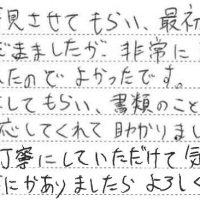 見させてもらい、最初
ましたが、非常に
たのでよかったです。
してもらい、書類のこと
応してくれて助かりまし
丁寧にしていただけて
にかありましたらよろしく